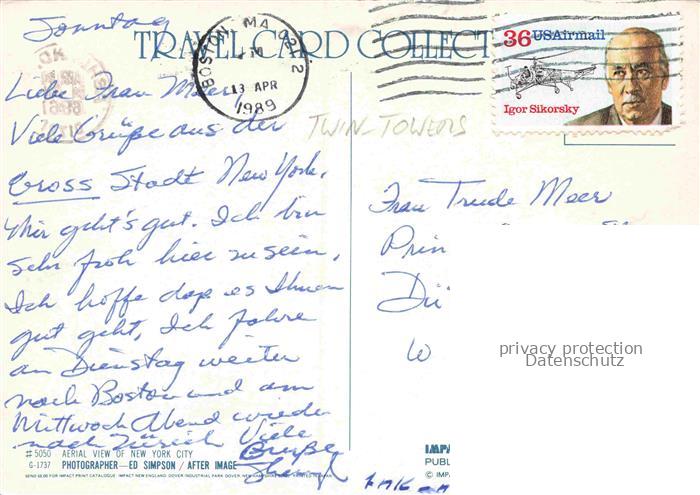 Sonntag
TRAVEL CARD COLLECT
BOSTON MA 022
PM
13 APR
1989
36 USAirmail
Igor Sikorsky
Liebe Frau Meer,
Viele Grüße aus der
TWIN-TOWERS
Gross Stadt New York.
Mir geht's gut. Ich bin
sehr froh hier zu sein,
Ich hoffe daß es Ihnen
gut geht, Ich fahre
am Dienstag weiter
nach Boston und am
Mittwoch Abend wieder
nach Zürich Viele
Grüße
Frau Trude Meer
Prin
Dü
W
privacy protection
Datenschutz
#5050 AERIAL VIEW OF NEW YORK CITY
G-1737 PHOTOGRAPHER—ED SIMPSON / AFTER IMAGE
IMPA
PUBL
© IMP